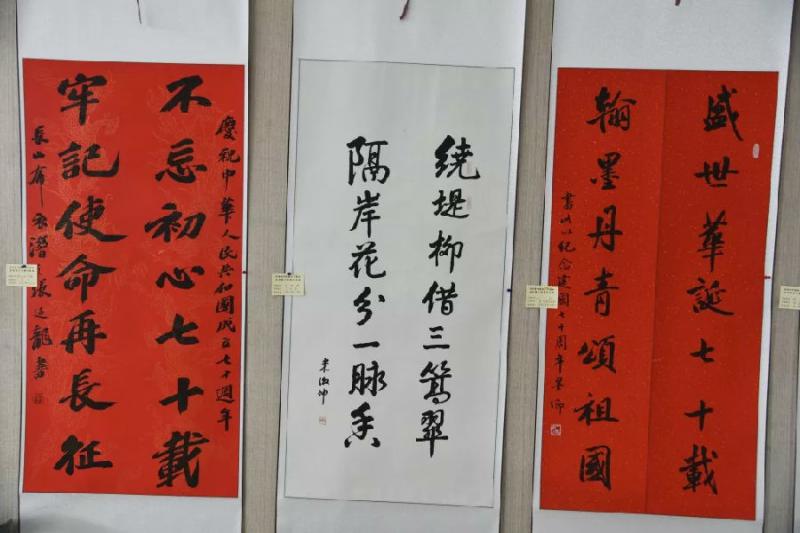 慶祝中華人民共和國成立七十週年
不忘初心七十載
牢記使命再長征
張廷龍書
绕堤柳借三篙翠
隔岸花分一脉香
盛世華誕七十載
翰墨丹青頌祖國
書此以紀念建國七十周年